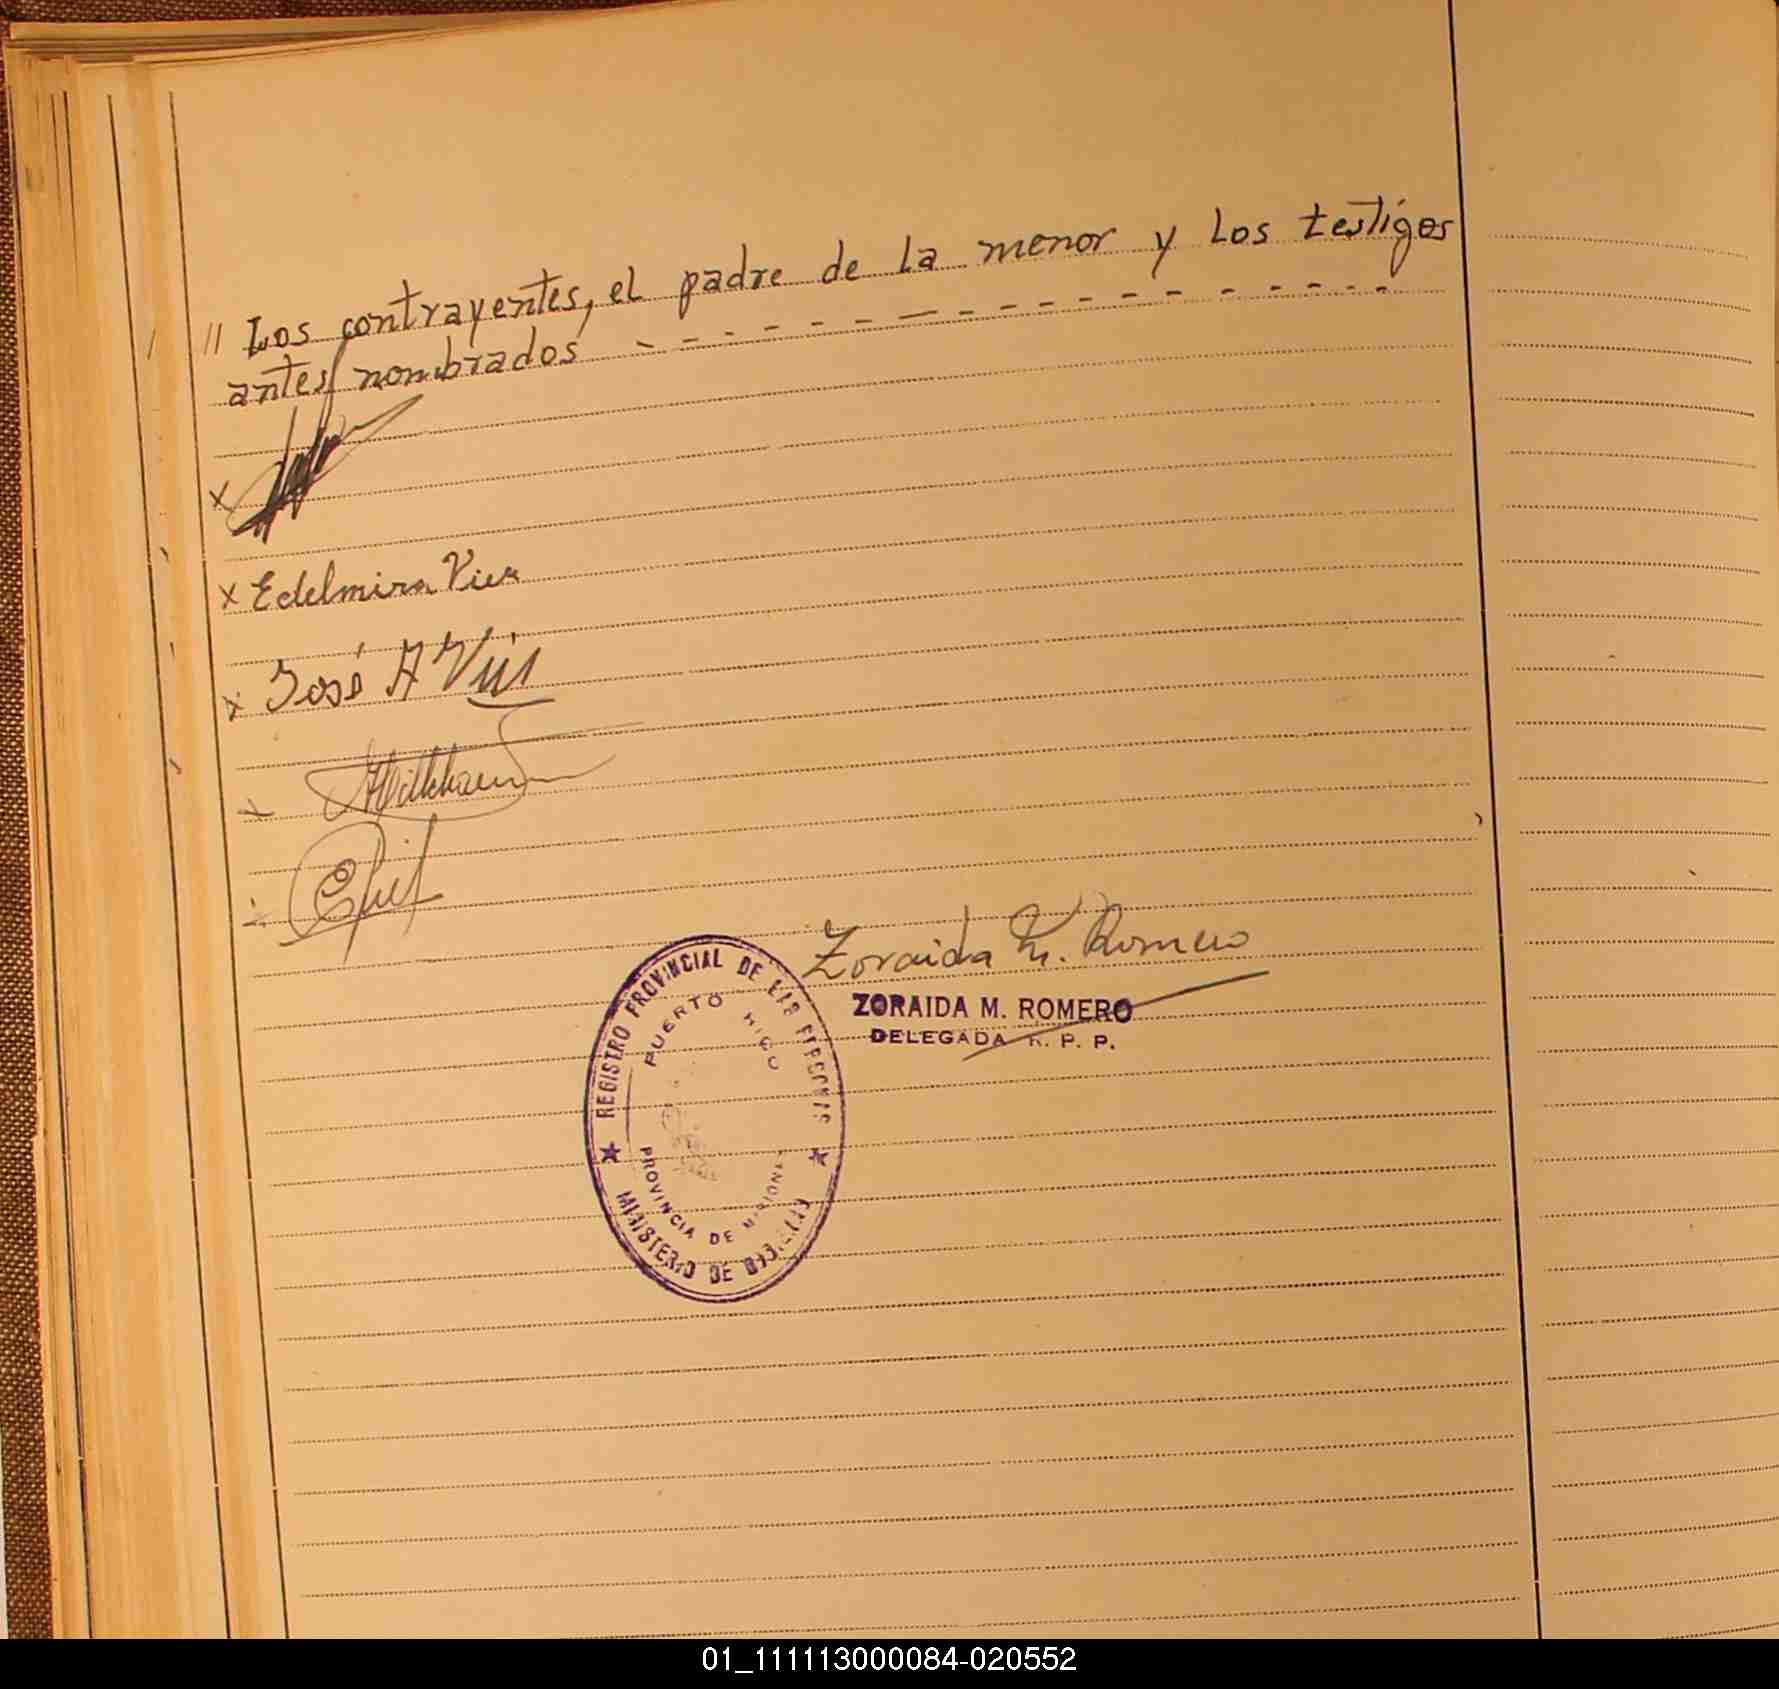 // Los contrayentes, el padre de la menor y los testigos
antes nombrados
x
x Edelmira
x José A
x
Zoraida M. Romero
ZORAIDA M. ROMERO
DELEGADA R. P. P.
★ REGISTRO PROVINCIAL DE LAS PERSONAS ★
PUERTO RICO
PROVINCIA DE MISIONES
MINISTERIO DE GOBIERNO
01_111113000084-020552